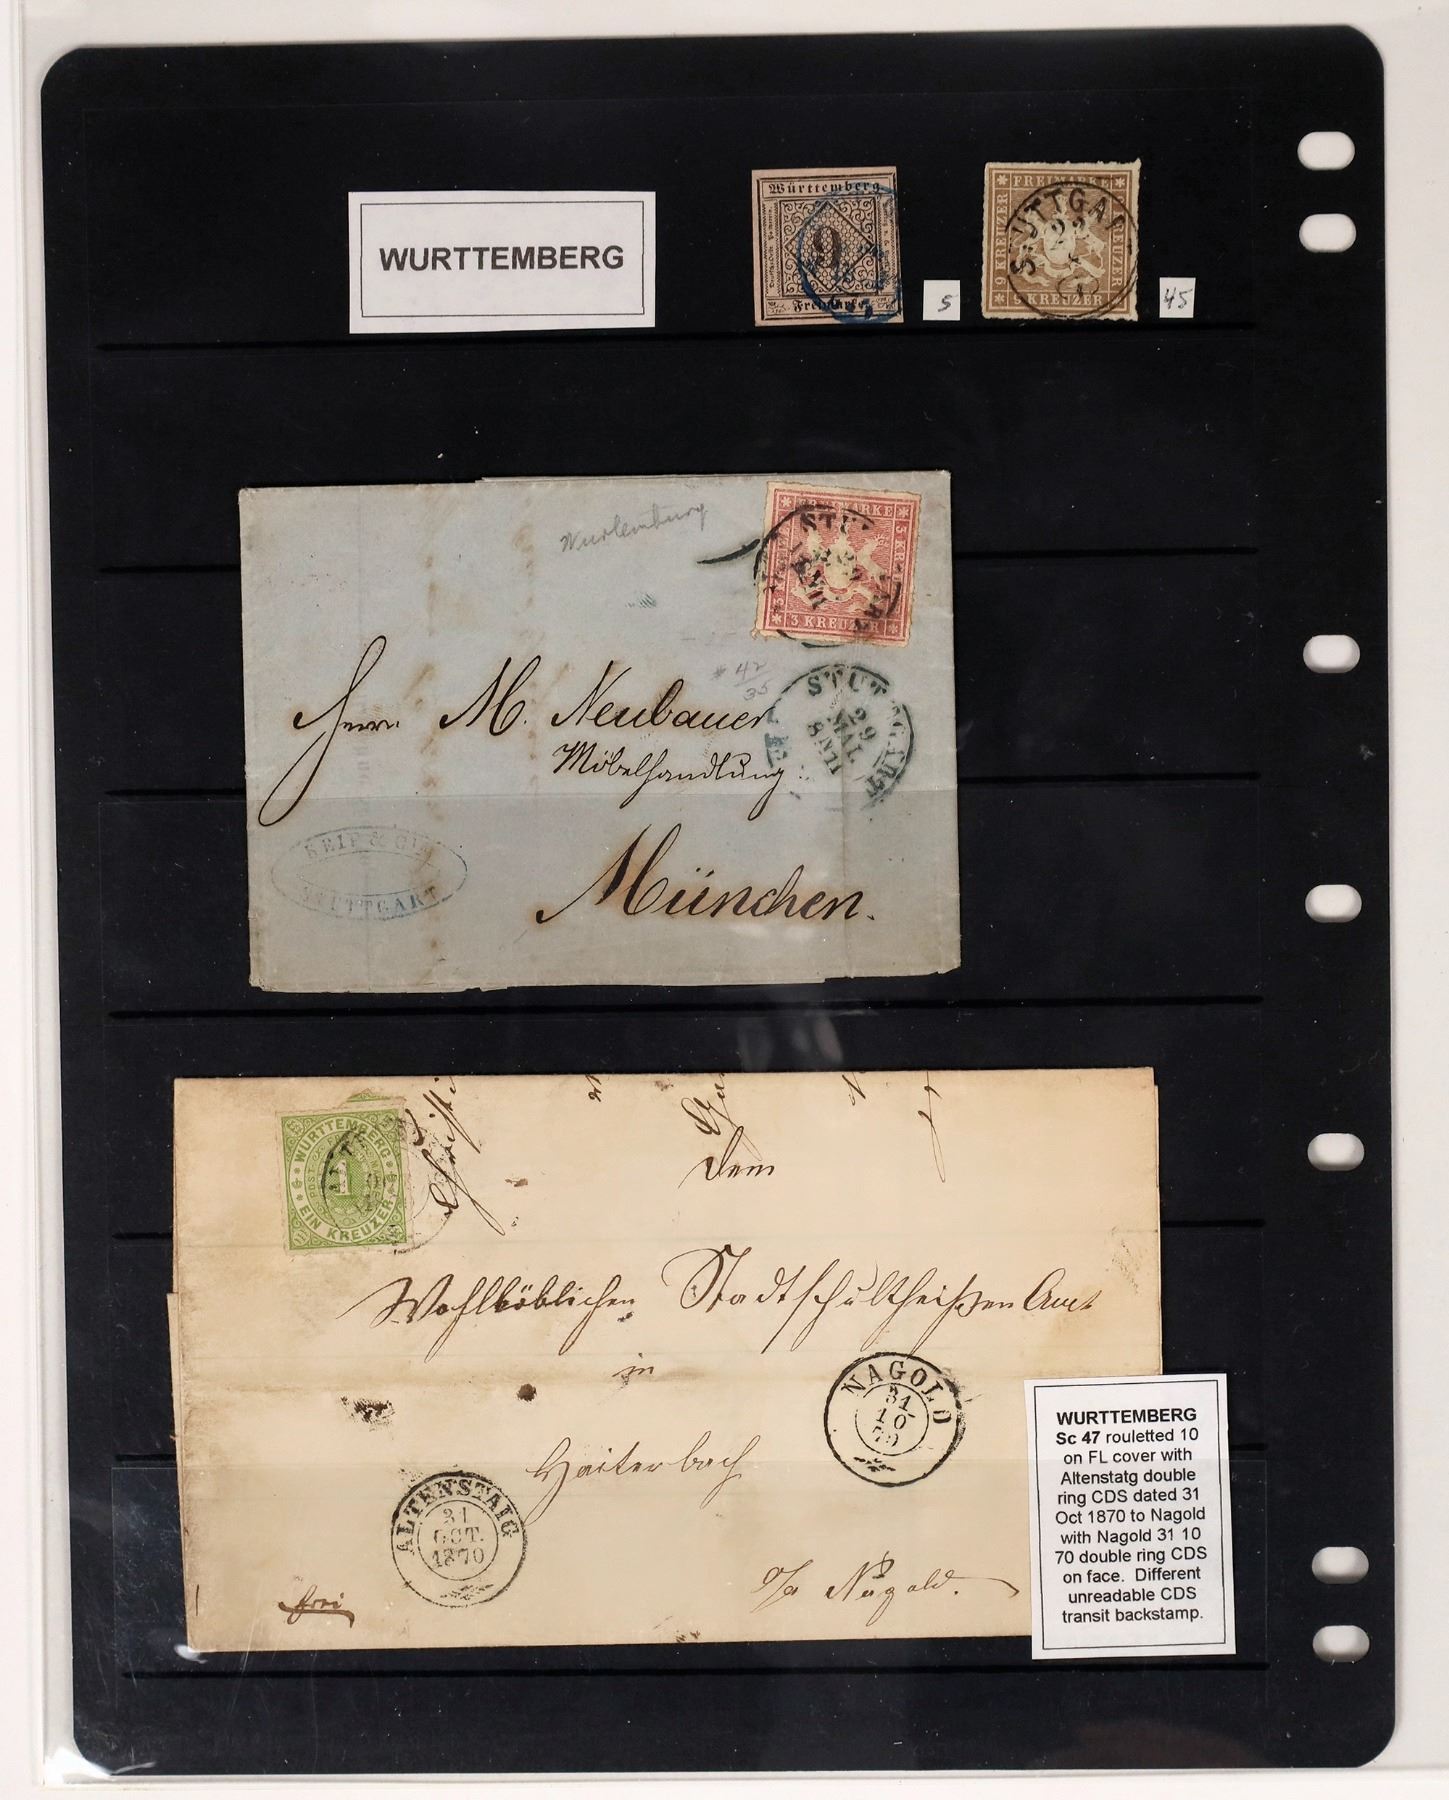 WURTTEMBERG
Württemberg
9
Freimarke
5
FREIMARKE
9 KREUZER
KREUZER
9 KREUZER
STUTTGAR
22
45
Wurtemburg
FREIMARKE
3 KR
3 KREUZER
STU
# 42
35
STUTTGART
29
MAI
8 NII
Herrn M. Neubauer
Möbelhandlung
REIF & CIE
STUTTGART
München.
WÜRTTEMBERG
POST
1
EIN KREUZER
Dem
Wohllöblichen Stadtschultheißen Amt
in
Haiterbach
NAGOLD
31
10
70
ALTENSTAIG
31
OCT.
1870
frei
o/a Nagold.
WURTTEMBERG
Sc 47 rouletted 10
on FL cover with
Altenstatg double
ring CDS dated 31
Oct 1870 to Nagold
with Nagold 31 10
70 double ring CDS
on face. Different
unreadable CDS
transit backstamp.